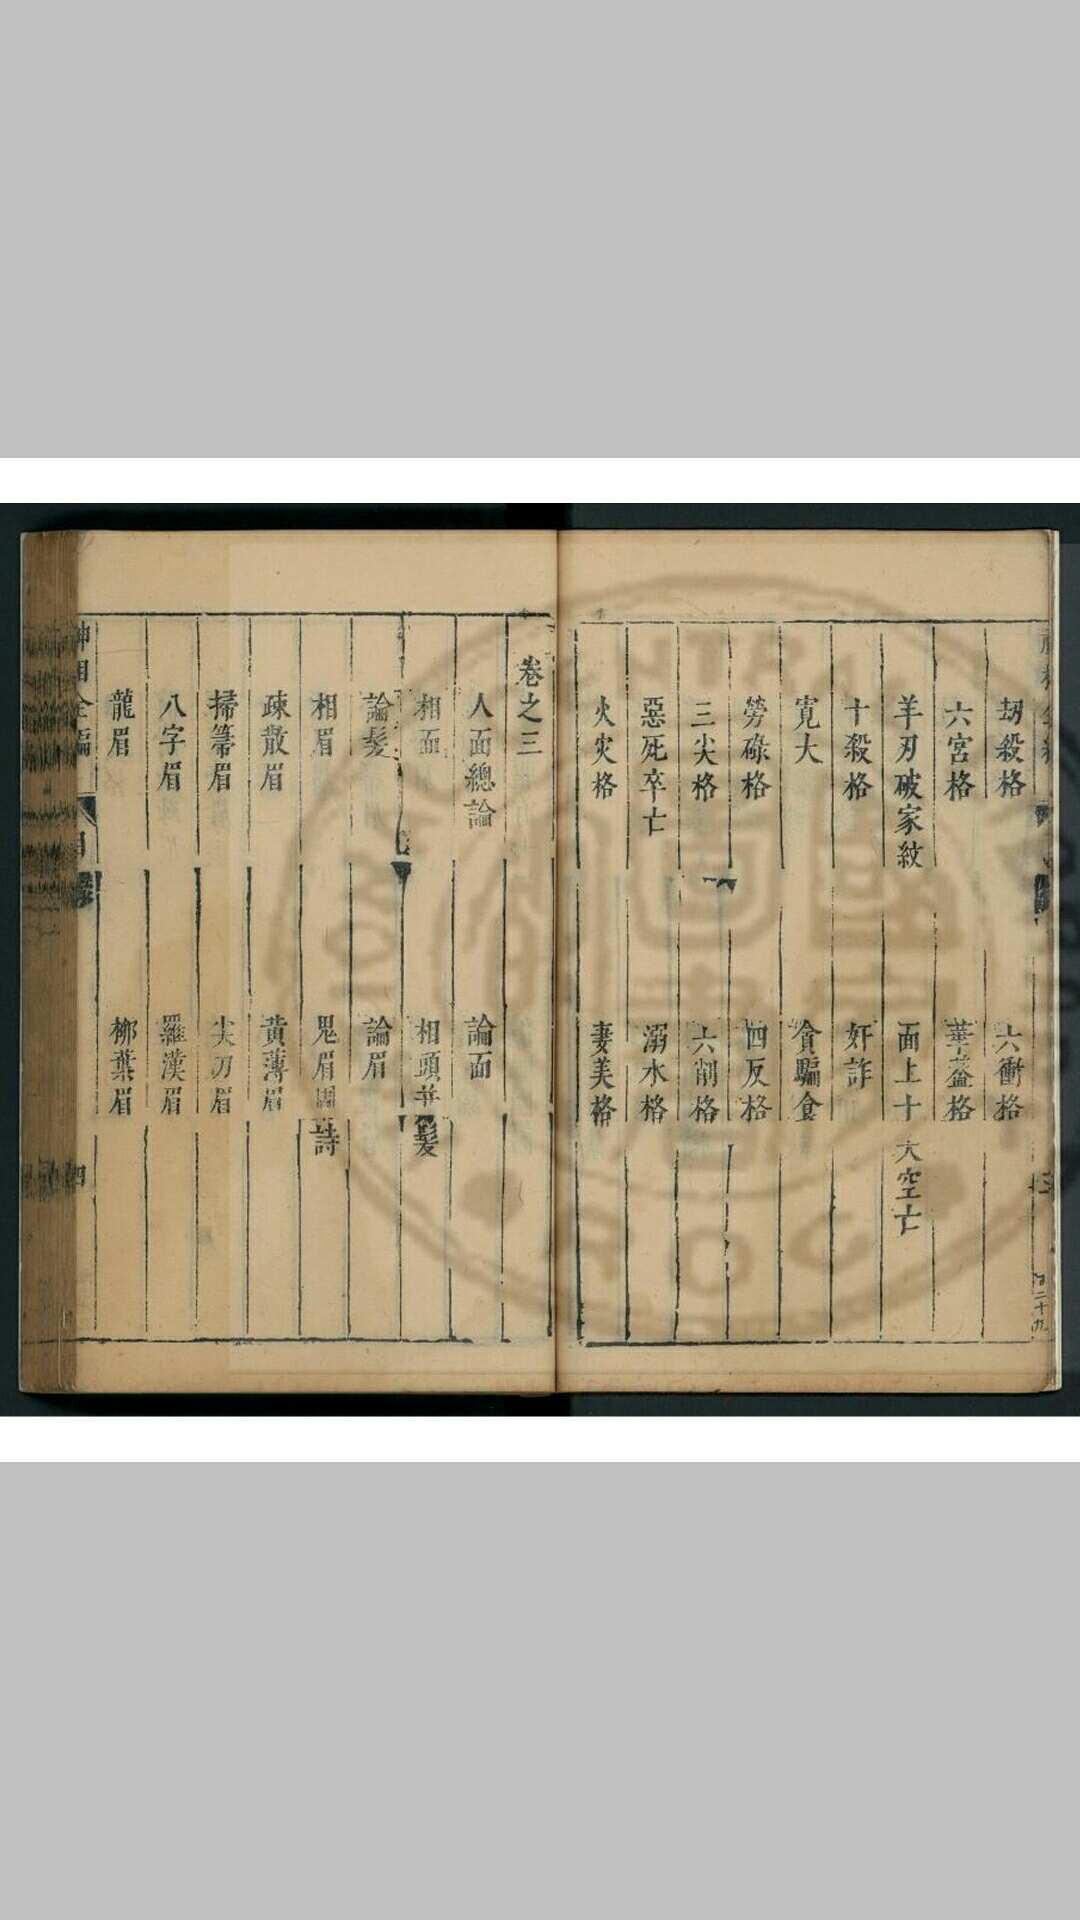 劫殺格 六衝格
六宮格 華蓋格
羊刃破家紋 面上十大空亡
十殺格 奸詐
寬大 貪騙食
勞碌格 四反格
三尖格 六削格
惡死卒亡 溺水格
火灾格 妻美格
卷之三
人面總論 論面
相面 相頭并髮
論髮 論眉
相眉 鬼眉圖詩
疎散眉 黃薄眉
掃箒眉 尖刀眉
八字眉 羅漢眉
龍眉 柳葉眉
神相全編 目 四